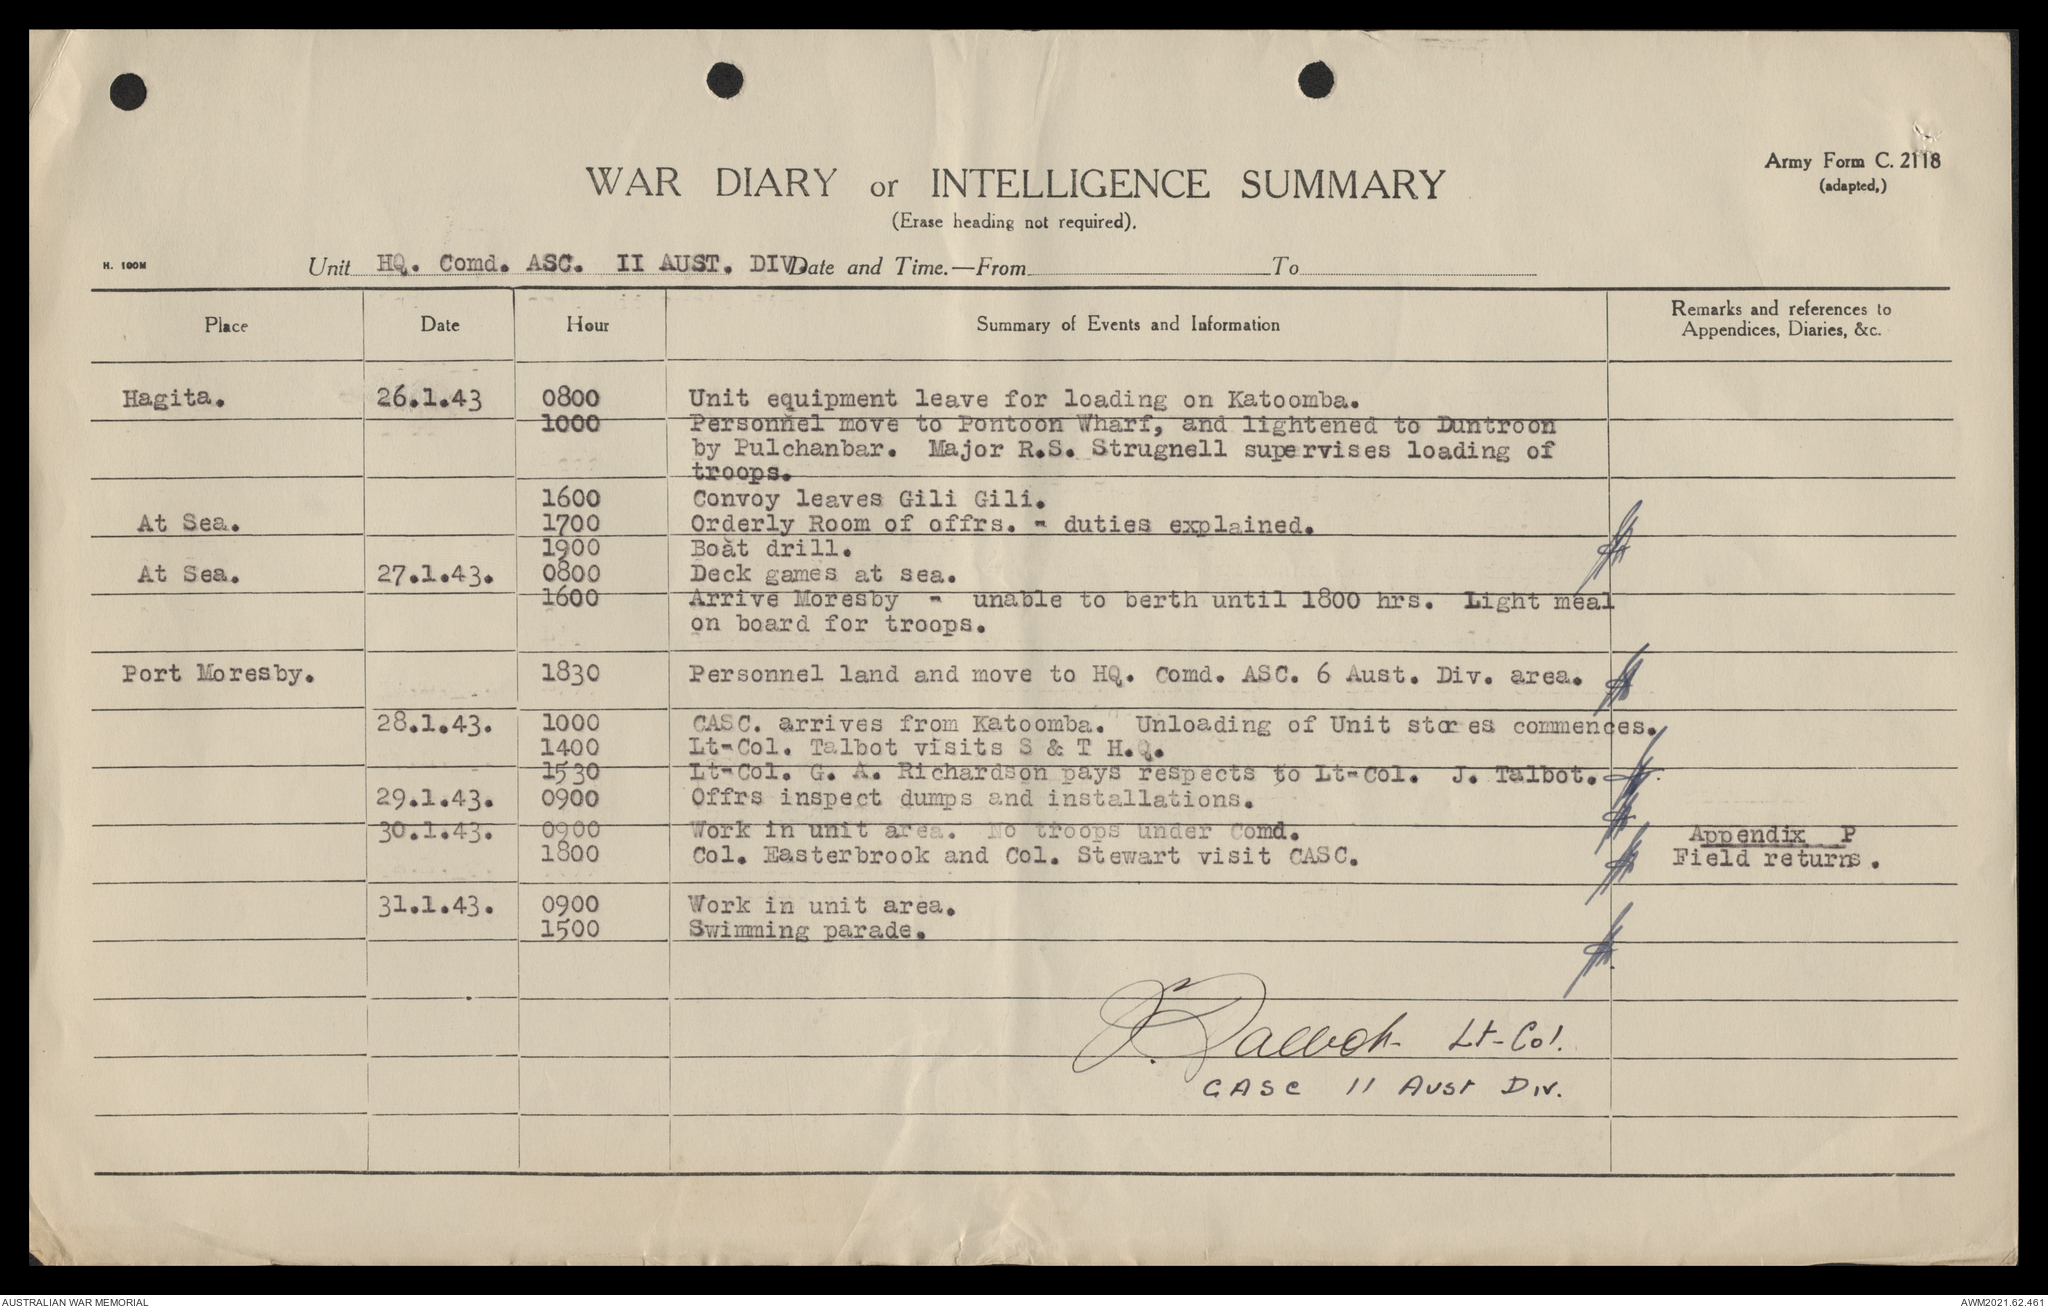 Army Form C. 2118
(adapted,)
WAR DIARY or INTELLIGENCE SUMMARY
(Erase heading not required).
H. 100M
Unit HQ. Comd. ASC. II AUST. DIV. Date and Time.—From To
Place Date Hour Summary of Events and Information Remarks and references to
Appendices, Diaries, &c.
Hagita. 26.1.43 0800 Unit equipment leave for loading on Katoomba.
1000 Personnel move to Pontoon Wharf, and lightened to Duntroon
by Pulchanbar. Major R.S. Strugnell supervises loading of
troops.
1600 Convoy leaves Gili Gili.
At Sea. 1700 Orderly Room of offrs. - duties explained.
1900 Boat drill.
At Sea. 27.1.43. 0800 Deck games at sea.
1600 Arrive Moresby - unable to berth until 1800 hrs. Light meal
on board for troops.
Port Moresby. 1830 Personnel land and move to HQ. Comd. ASC. 6 Aust. Div. area.
28.1.43. 1000 CASC. arrives from Katoomba. Unloading of Unit stores commences.
1400 Lt-Col. Talbot visits S & T H.Q.
1530 Lt-Col. G. A. Richardson pays respects to Lt-Col. J. Talbot.
29.1.43. 0900 Offrs inspect dumps and installations.
30.1.43. 0900 Work in unit area. No troops under Comd. Appendix P
1800 Col. Easterbrook and Col. Stewart visit CASC. Field returns.
31.1.43. 0900 Work in unit area.
1500 Swimming parade.
J. Talbot Lt-Col.
CASC 11 Aust Div.
AUSTRALIAN WAR MEMORIAL AWM2021.62.461